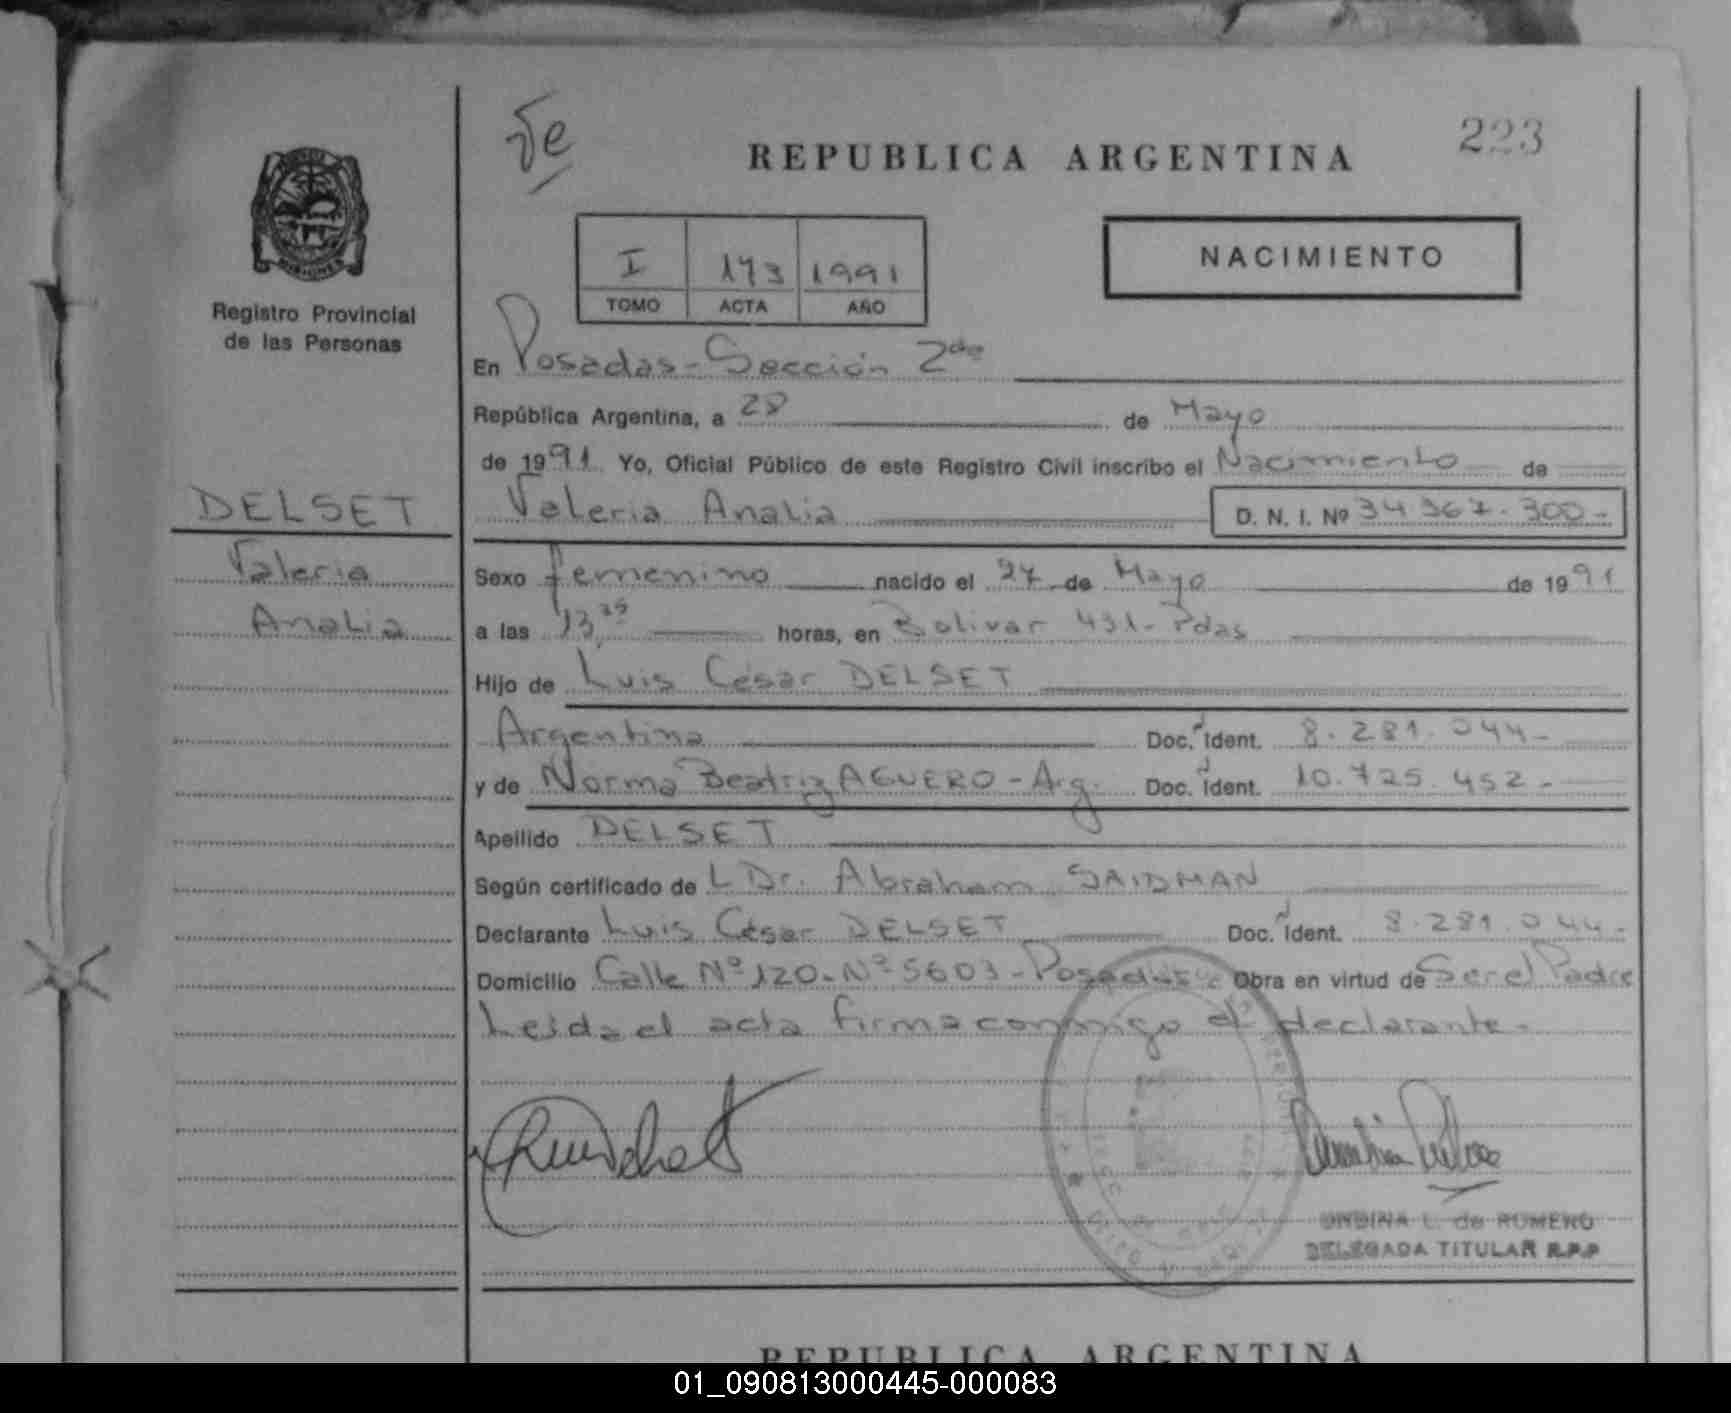 223
REPUBLICA ARGENTINA
MISIONES
Registro Provincial
de las Personas
I 173 1991
TOMO ACTA AÑO
NACIMIENTO
En Posadas - Sección 2da
República Argentina, a 28 de Mayo
de 1991 Yo, Oficial Público de este Registro Civil inscribo el Nacimiento de
DELSET
Valeria Analia D. N. I. Nº 34 367. 300-
Valeria
Analia
Sexo femenino nacido el 27 de Mayo de 1991
a las 13 35 horas, en Bolivar 431 - Pdas
Hijo de Luis César DELSET
Argentina Doc. Ident. 8. 281. 044-
y de Norma Beatriz AGUERO - Arg. Doc. Ident. 10.725.452-
Apellido DELSET
Según certificado de L Dr. Abraham SAIDMAN
Declarante Luis César DELSET Doc. Ident. 8.281.044-
Domicilio Calle Nº 120 - Nº 5603 - Posadas Obra en virtud de Ser el Padre
Leida el acta firma conmigo el declarante -
ONDINA L. de ROMERO
DELEGADA TITULAR R.P.P
REPUBLICA ARGENTINA
01_090813000445-000083